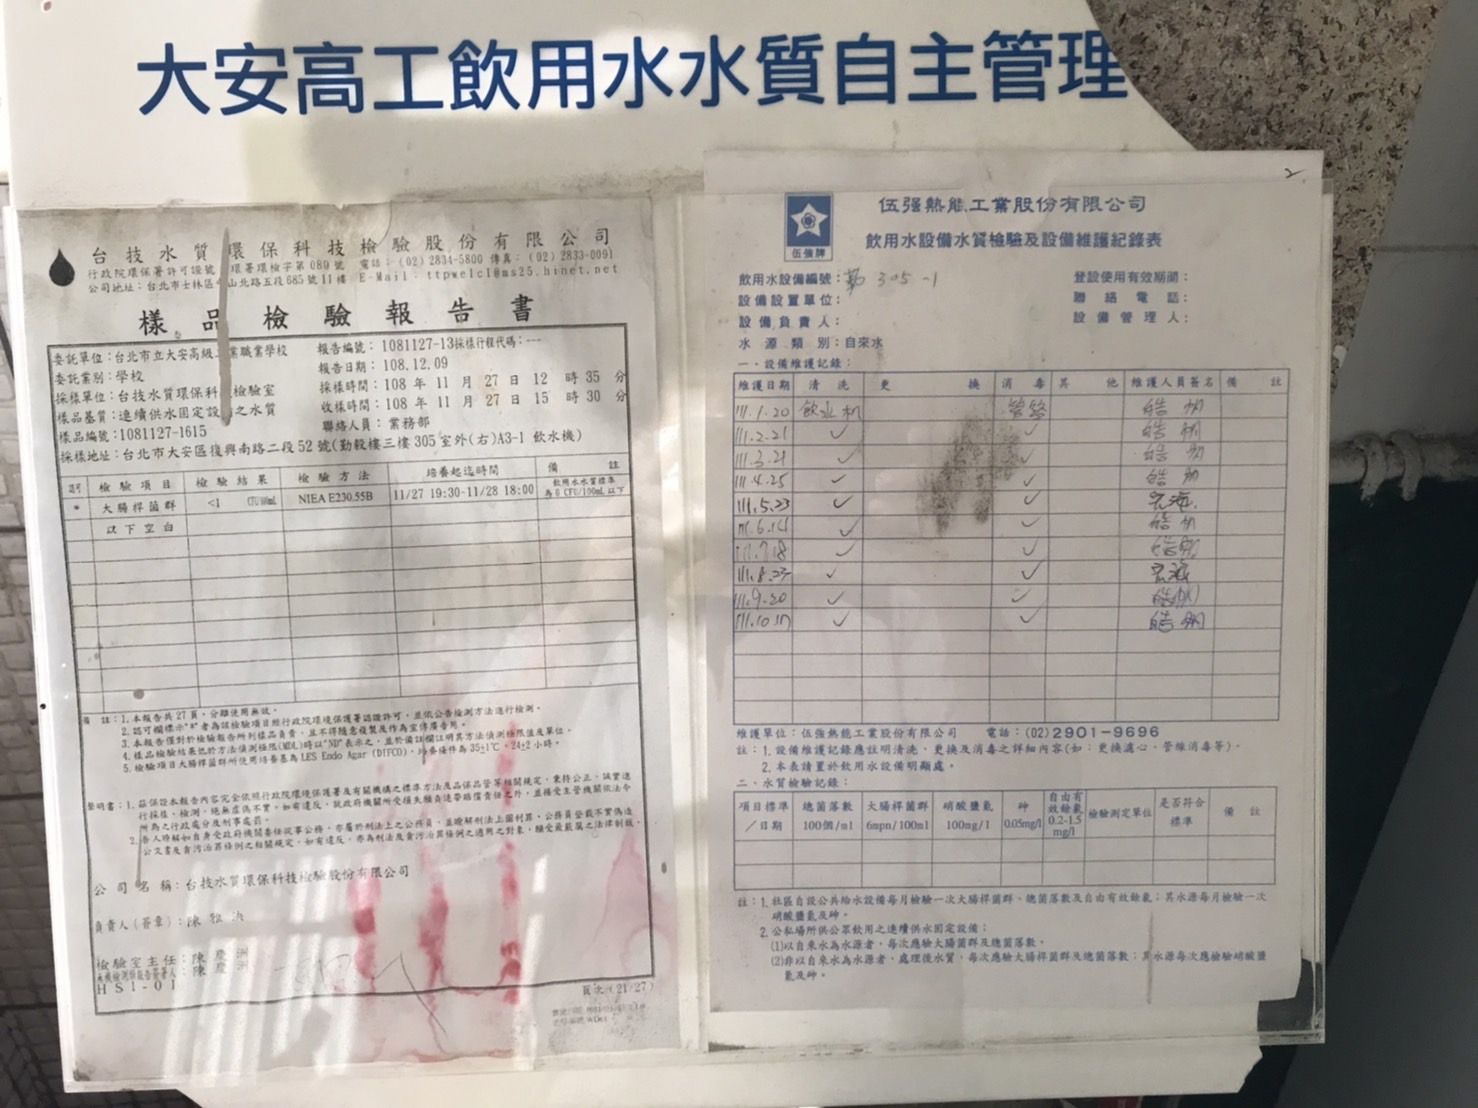 大安高工飲用水水質自主管理
台技水質環保科技檢驗股份有限公司
行政院環保署許可證號 環署環檢字第089號 電話：(02) 2834-5800 傳真：(02) 2833-0091
公司地址：台北市士林區 山北路五段685號11樓 E-Mail：ttpwelcl@ms25.hinet.net
樣品檢驗報告書
委託單位：台北市立大安高級 業職業學校
報告編號：1081127-13採樣行程代碼：---
委託業別：學校
報告日期：108.12.09
採樣單位：台技水質環保科 檢驗室
採樣時間：108 年 11 月 27 日 12 時 35 分
樣品基質：連續供水固定設 之水質
收樣時間：108 年 11 月 27 日 15 時 30 分
樣品編號：1081127-1615
聯絡人員：業務部
採樣地址：台北市大安區復興南路二段52號(勤毅樓三樓305室外(右)A3-1 飲水機)
檢驗項目 檢驗結果 檢驗方法 培養起迄時間 備註
* 大腸桿菌群 <1 CFU/100mL NIEA E230.55B 11/27 19:30-11/28 18:00 飲用水水質標準為6 CFU/100mL以下
以下空白
備註：1.本報告共27頁，分離使用無效。
2.認可欄標示"*"者為該檢驗項目經行政院環境保護署認證許可，並依公告檢測方法進行檢測。
3.本報告僅對於檢驗報告所列樣品負責，且不得隨意複製及作為宣傳廣告用。
4.樣品檢驗結果低於方法偵測極限(MDL)時以"ND"表示之，並於備註欄註明其方法偵測極限值及單位。
5.檢驗項目大腸桿菌群所使用培養基為LES Endo Agar (DIFCO)，培養條件為35±1℃，24±2小時。
聲明書：1.茲保證本報告內容完全依照行政院環境保護署及有關機構之標準方法及品保品管等相關規定，秉持公正、誠實進
行採樣、檢測，絕無虛偽不實，如有違反，就政府機關所受損失願負連帶賠償責任之外，並接受主管機關依法令
所為之行政處分及刑事處罰。
2.吾人瞭解如自身受政府機關委任從事公務，亦屬於刑法上之公務員，並瞭解刑法上圖利罪、公務員登載不實偽造
公文書及貪污治罪條例之相關規定，如有違反，亦為刑法及貪污治罪條例之適用之對象，願受最嚴厲之法律制裁。
公司名稱：台技水質環保科技檢驗股份有限公司
負責人(簽章)：陳雅
檢驗室主任：陳慶洲
陳慶洲
HSI-01
頁次(21/27)
2
伍強牌
伍强熱能工業股份有限公司
飲用水設備水質檢驗及設備維護紀錄表
飲用水設備編號：勤 305-1
登設使用有效期間：
設備設置單位：
聯絡電話：
設備負責人：
設備管理人：
水源類別：自來水
一、設備維護記錄：
維護日期 清洗 更換 消毒 其他 維護人員簽名 備註
111.1.20 飲水机 管路
111.2.21 ✓ ✓
111.3.21 ✓ ✓
111.4.25 ✓ ✓
111.5.23 ✓ ✓
111.6.14 ✓ ✓
111.7.18 ✓ ✓
111.8.23 ✓ ✓
111.9.20 ✓ ✓
111.10.17 ✓ ✓
維護單位：伍強熱能工業股份有限公司 電話：(02)2901-9696
註：1.設備維護記錄應註明清洗、更換及消毒之詳細內容(如：更換濾心、管線消毒等)。
2.本表請置於飲用水設備明顯處。
二、水質檢驗記錄：
項目標準／日期 總菌落數100個/ml 大腸桿菌群6mpn/100ml 硝酸鹽氮100mg/l 砷0.05mg/l 自由有效餘氯0.2-1.5mg/l 檢驗測定單位 是否符合標準 備註
註：1.社區自設公共給水設備每月檢驗一次大腸桿菌群、總菌落數及自由有效餘氯；其水源每月檢驗一次
硝酸鹽氮及砷。
2.公私場所供公眾飲用之連續供水固定設備：
(1)以自來水為水源者，每次應驗大腸菌群及總菌落數。
(2)非以自來水為水源者，處理後水質，每次應驗大腸桿菌群及總菌落數；其水源每次應檢驗硝酸鹽
氮及砷。